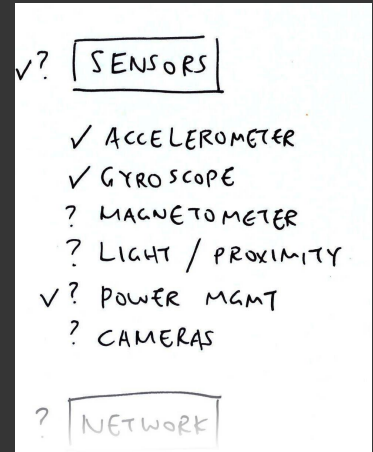 ✓? SENSORS
✓ ACCELEROMETER
✓ GYROSCOPE
? MAGNETOMETER
? LIGHT / PROXIMITY
✓? POWER MGMT
? CAMERAS
? NETWORK